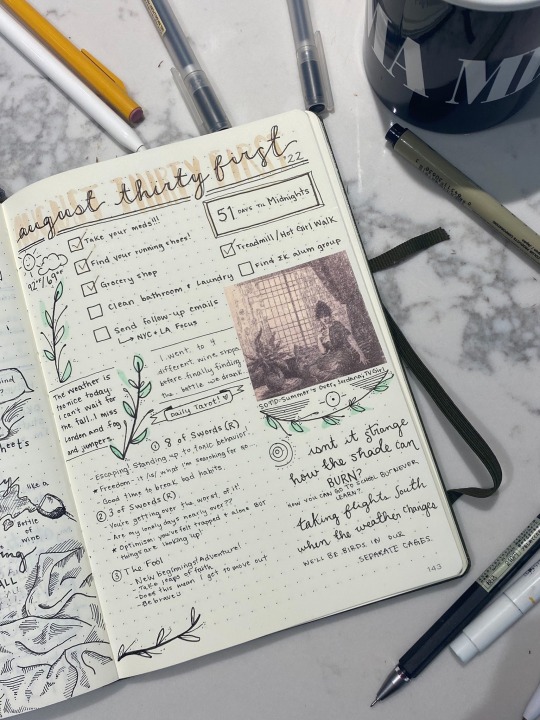 august thirty first
'22
Take your meds!!!
Find your running shoes!
Grocery shop
Clean bathroom & Laundry
Send follow-up emails
↳ NYC + LA Focus
51 DAYS TIL Midnights
Treadmill/Hot Girl Walk
Find ΣK alum group
92°/69°
The weather is
so nice today!
I can't wait for
the fall...I miss
London and fog
and jumpers.
I went to 4
different wine shops
before finally finding
the bottle we drank.
Daily Tarot!
① 8 of Swords (R)
- Escaping! Standing up to toxic behavior!
- Good time to break bad habits.
② 3 of Swords (R)
- You're getting over the worst of it!
- Are my lonely days nearly over??
things are looking up!
③ The Fool
- New beginnings! Adventure!
- Take leaps of faith
- Does this mean I got to move out
- Be brave
SOTD-Summer's Over, Jordana, TV Girl
isnt it strange
how the shade can
BURN?
HOW YOU CAN GO TO SCHOOL BUT NEVER
LEARN?
taking flights South
when the weather changes
WE'LL BE BIRDS IN OUR
SEPARATE CAGES.
143
like a
Bottle
of
wine
MA MI